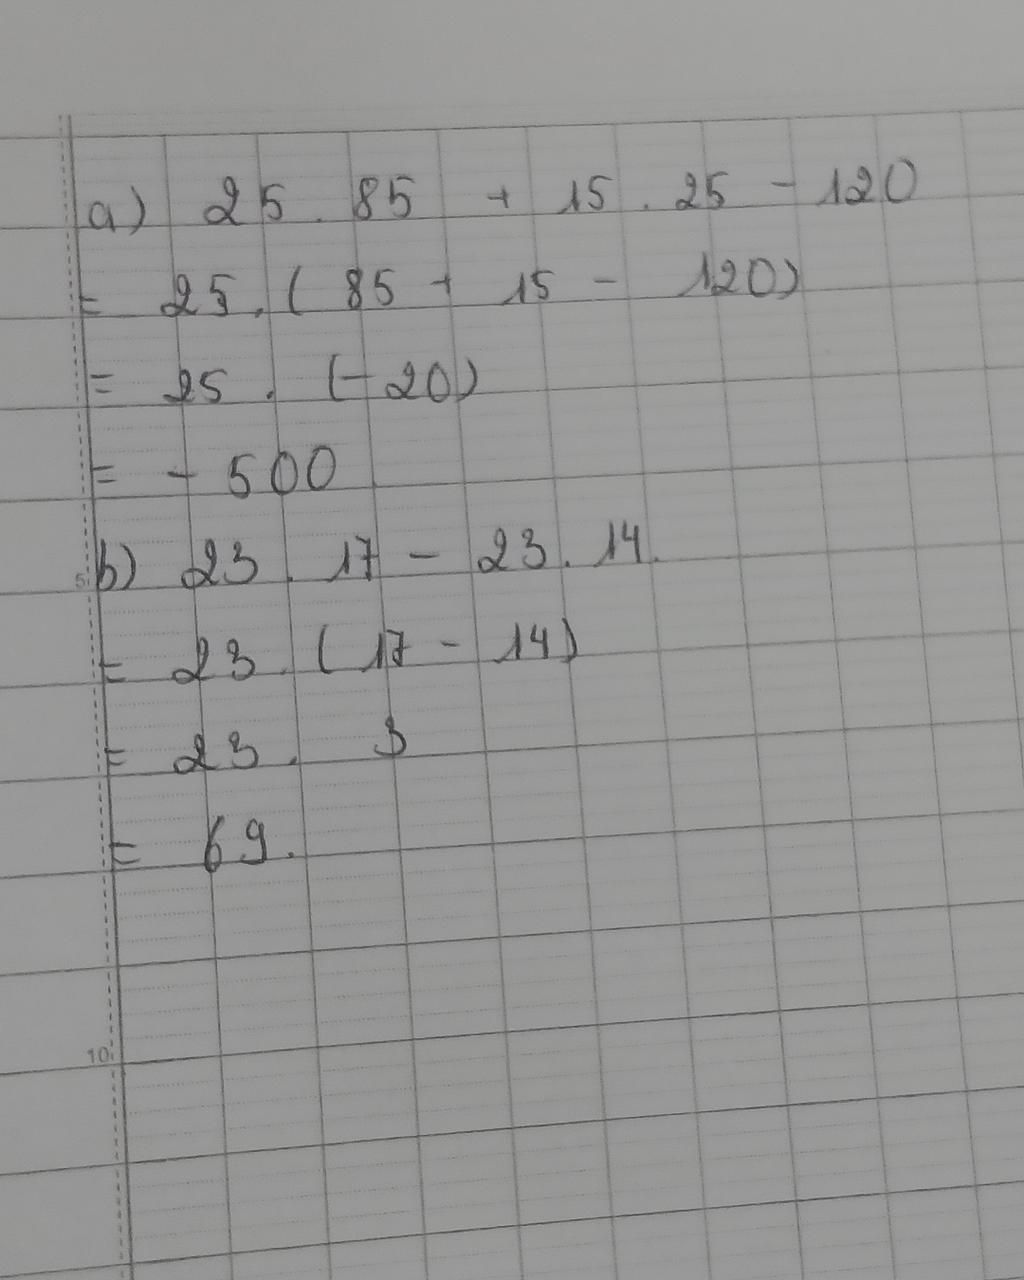 a) 25 . 85 + 15 . 25 - 120
= 25 . ( 85 + 15 - 120)
= 25 . (- 20)
= - 500
5 b) 23 . 17 - 23 . 14.
= 23 . ( 17 - 14)
= 23 . 3
= 69.
10